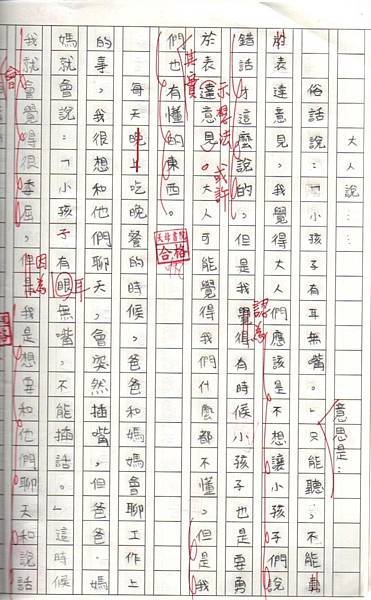 大人說⋯
俗話說:「小孩子有耳無嘴。」只能聽,不能勇
意思是:
於表達意見。我覺得大人們應該是不想讓小孩子們說
錯話才這麼說的,但是我覺得有時候小孩子也是要勇
認為
於表達意見。大人可能覺得我們什麼都不懂,但是我
示想法或許
們也有懂的東西。
其實
合格
每天晚上吃晚餐的時候,爸爸和媽媽會聊工作上
的事,我很想和他們聊天,會突然插嘴,但爸爸媽
媽就會說:「小孩子有眼無嘴,不能插話。」這時候
耳
我就會覺得很委屈,但是我是想要和他們聊天和說話
因為
會